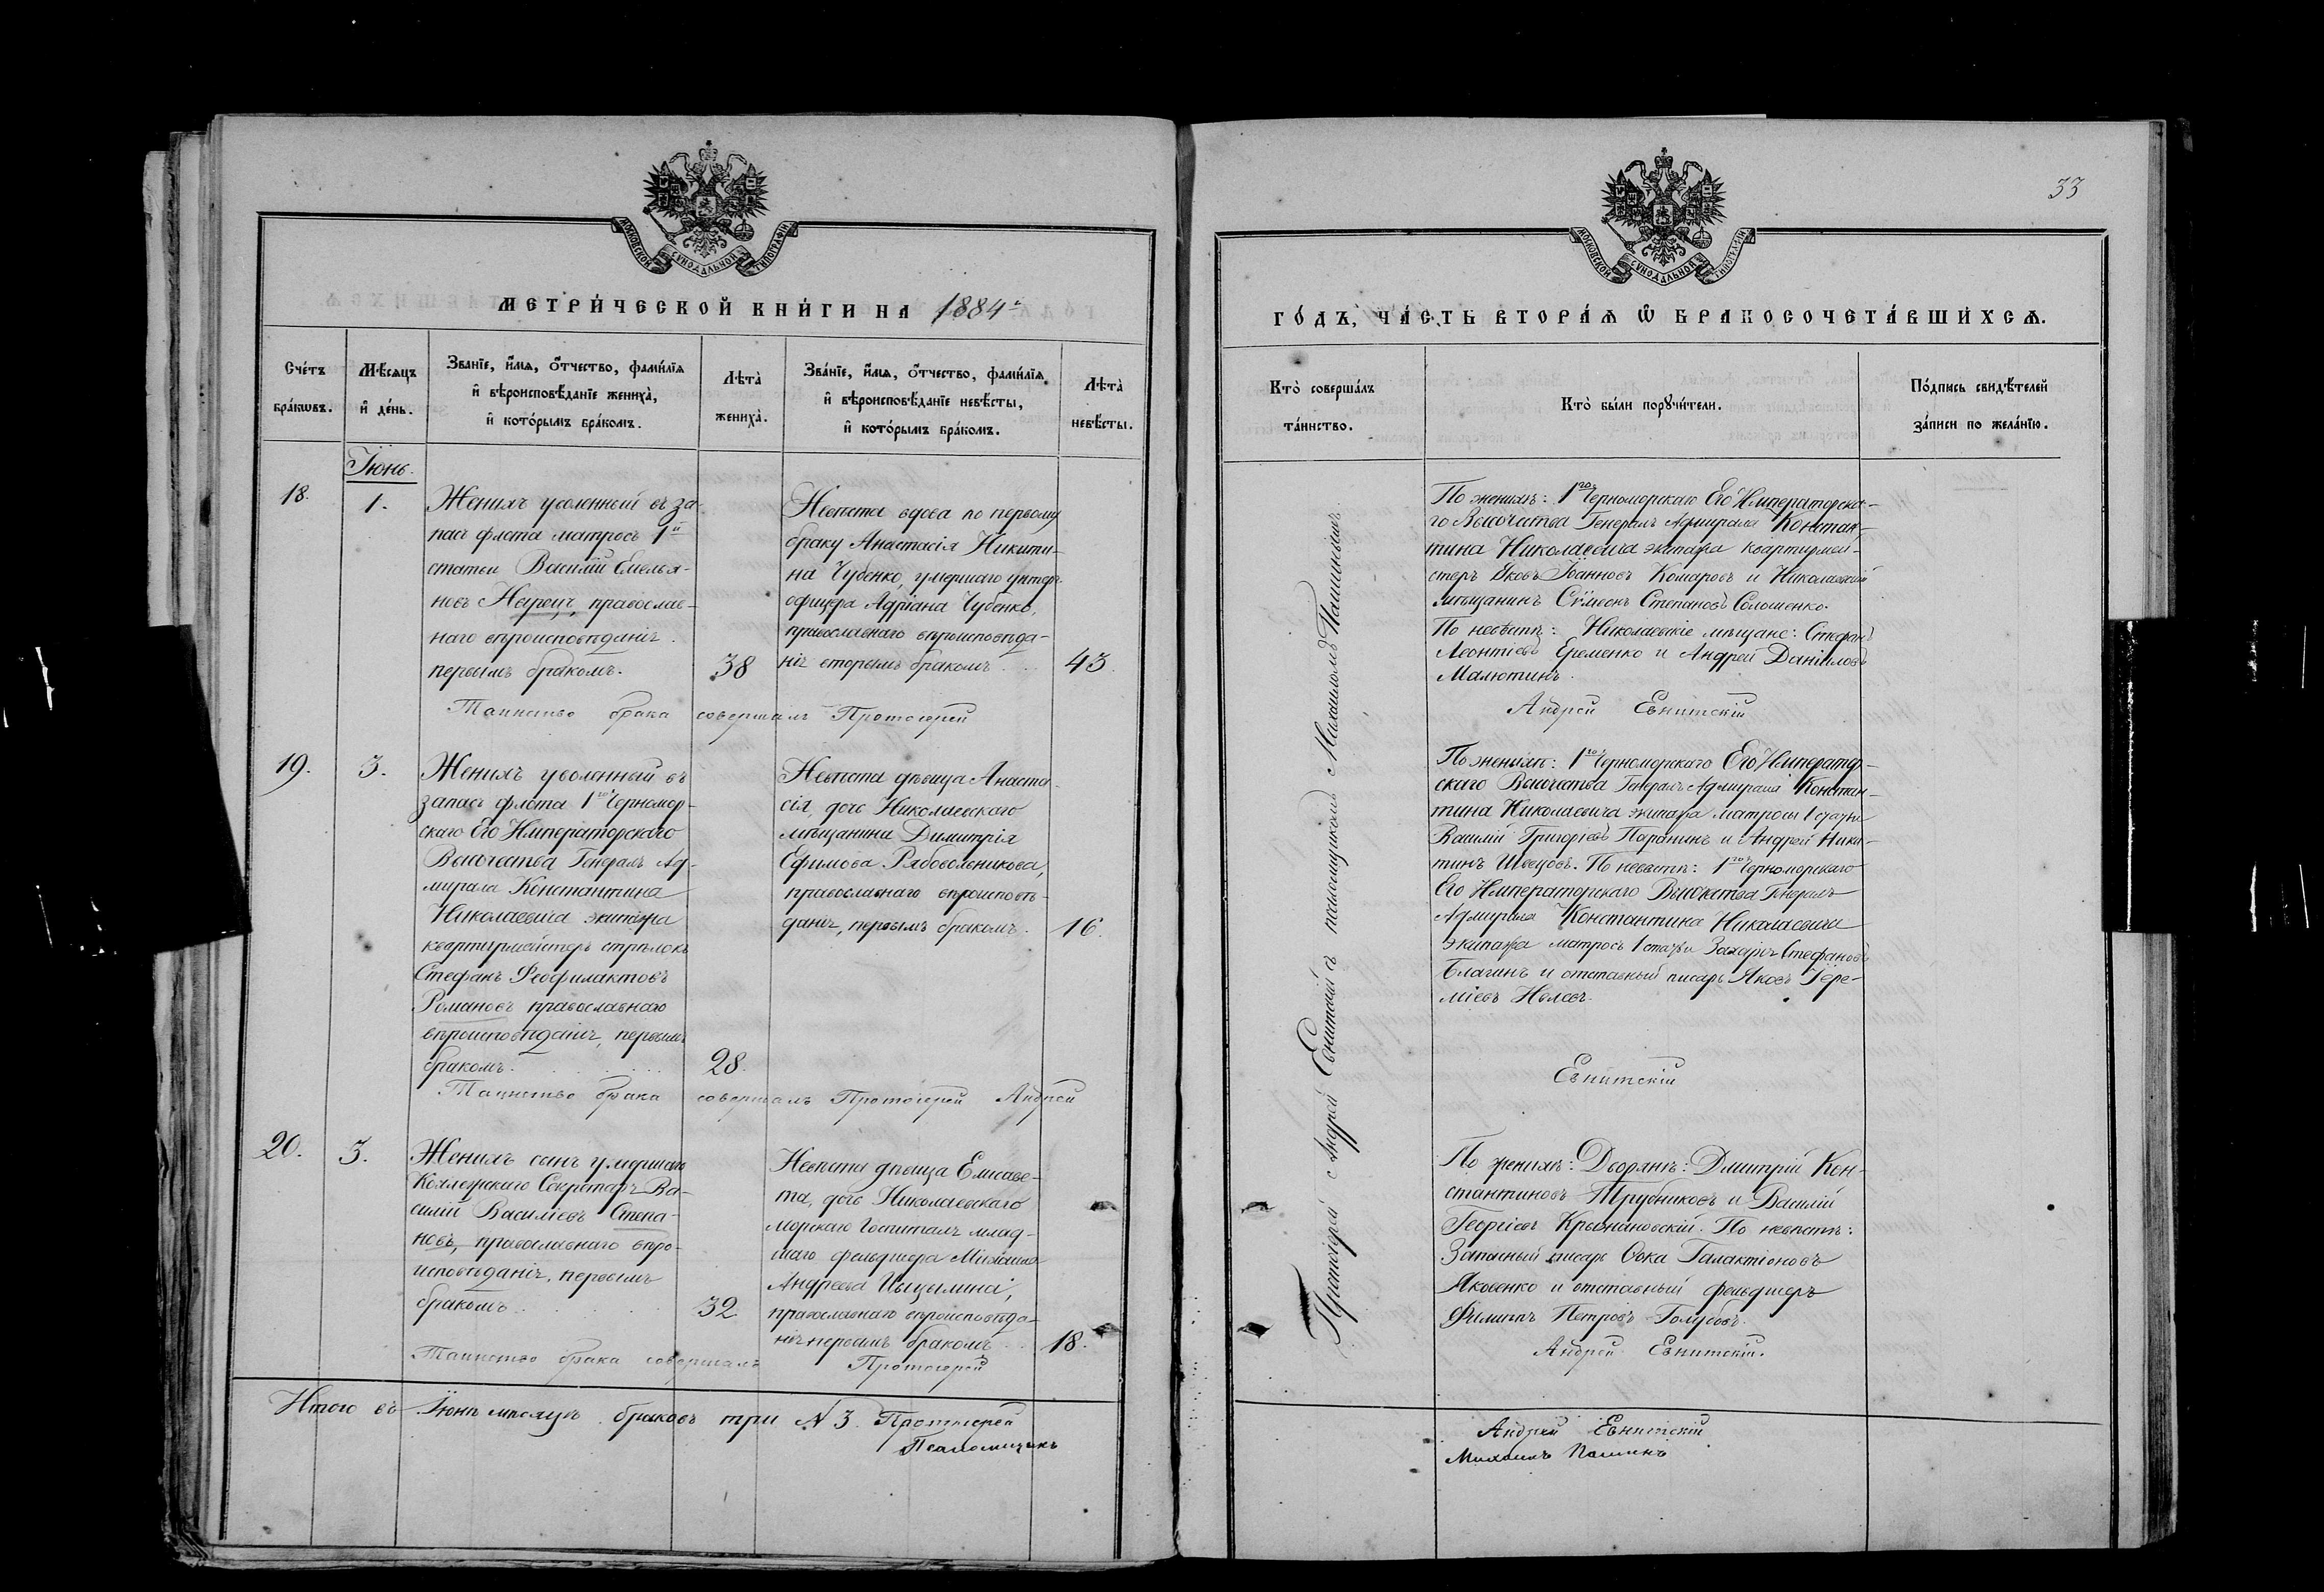 МОСКОВСКОЙ СѴНОДАЛЬНОЙ ТИПОГРАФІИ
МЕТРИ́ЧЕСКОЙ КНИ́ГИ НА 1884
Сче́тъ
бра́кѡвъ.
Мѣ́сяцъ
и҆ де́нь.
Зва́нїе, и҆́мѧ, ѻ҆́тчество, фами́лїѧ
и҆ вѣроисповѣ́данїе жениха̀,
и҆ кото́рымъ бра́комъ.
Лѣта̀
жениха̀.
Зва́нїе, и҆́мѧ, ѻ҆́тчество, фами́лїѧ
и҆ вѣроисповѣ́данїе невѣ́сты,
и҆ кото́рымъ бра́комъ.
Лѣта̀
невѣ́сты.
Іюнь.
18.
1.
Женихъ уволенный въ за-
пасъ флота матросъ 1й
статьи Василій Емелья-
новъ
православ-
наго вѣроисповѣданія.
первымъ бракомъ.
38
Невѣста вдова по первому
браку Анастасія Никити-
на Чубенко, умершаго унтеръ
офицера Адріана Чубенко,
православнаго вѣроисповѣда-
нія вторымъ бракомъ
43.
Таинство брака совершалъ Протоіерей
19.
3.
Женихъ уволенный въ
запасъ флота 1го Черномор-
скаго Его Императорскаго
Высочества Генералъ Ад-
мирала Константина
Николаевича экипажа
квартирмейстеръ стрѣлокъ
Стефанъ Феофилактовъ
Романовъ православнаго
вѣроисповѣданія, первымъ
бракомъ
28.
Невѣста дѣвица Анаста-
сія, дочь Николаевскаго
мѣщанина Димитрія
Ефимова Рябовольникова,
православнаго вѣроисповѣ-
данія, первымъ бракомъ.
16.
Таинство брака совершалъ Протоіерей Андрей
20.
3.
Женихъ сынъ умершаго
Коллежскаго Секретаря Ва-
силій Василіевъ Степа-
новъ, православнаго вѣро-
исповѣданія, первымъ
бракомъ
32
Невѣста дѣвица Елисаве-
та, дочь Николаевскаго
морскаго Госпиталя млад-
шаго фельдшера Михаила
Андреева
православнаго вѣроисповѣда-
нія первымъ бракомъ
18.
Таинство брака совершалъ Протоіерей
Итого въ Іюнѣ мѣсяцѣ браковъ три N 3. Протоіерей
Псаломщикъ
33
МОСКОВСКОЙ СѴНОДАЛЬНОЙ ТИПОГРАФІИ
ГО́ДЪ, ЧА́СТЬ ВТОРА́Ѧ Ѽ БРАКОСОЧЕТА́ВШИХСѦ.
Кто̀ соверша́лъ
та́инство.
Кто̀ бы́ли порꙋчи́тели.
По́дпись свидѣ́телей
за́писи по жела́нїю.
Протоіерей Андрей Евнитскій съ псаломщикомъ Михаиломъ Пашинымъ.
По женихѣ: 1го Черноморскаго Его Императорска-
го Высочества Генералъ Адмирала Констан-
тина Николаевича экипажа квартирмей-
стеръ Яковъ Іоанновъ Комаровъ и Николаевскій
мѣщанинъ Сѵмеонъ Степановъ Соломенко.
По невѣстѣ: Николаевскіе мѣщане: Стефанъ
Леонтіевъ Еременко и Андрей Даніиловъ
Малютинъ.
Андрей Евнитскій
По женихѣ: 1го Черноморскаго Его Император-
скаго Высочества Генералъ Адмирала Констан-
тина Николаевича экипажа матросы 1 статьи
Василій Григоріевъ Паранинъ и Андрей Ники-
тинъ Швецовъ. По невѣстѣ: 1го Черноморскаго
Его Императорскаго Высочества Генералъ
Адмирала Константина Николаевича
экипажа матросъ 1 статьи Захарія Стефановъ
Благинъ и отставный писарь Яковъ Іере-
міевъ
Евнитскій
По женихѣ: Дворяне: Дмитрій Кон-
стантиновъ Трубниковъ и Василій
Георгіевъ Крыжановскій. По невѣстѣ:
Запасный писарь Ѳока Галактіоновъ
Яковенко и отставный фельдшеръ
Филиппъ Петровъ Голубовъ.
Андрей Евнитскій.
Андрей Евнитскій
Михаилъ Пашинъ